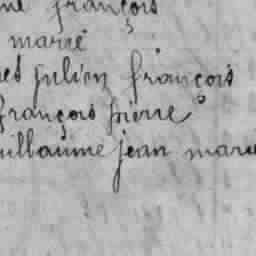 françois
marie
julien françois
françois pierre
uillaume jean marie